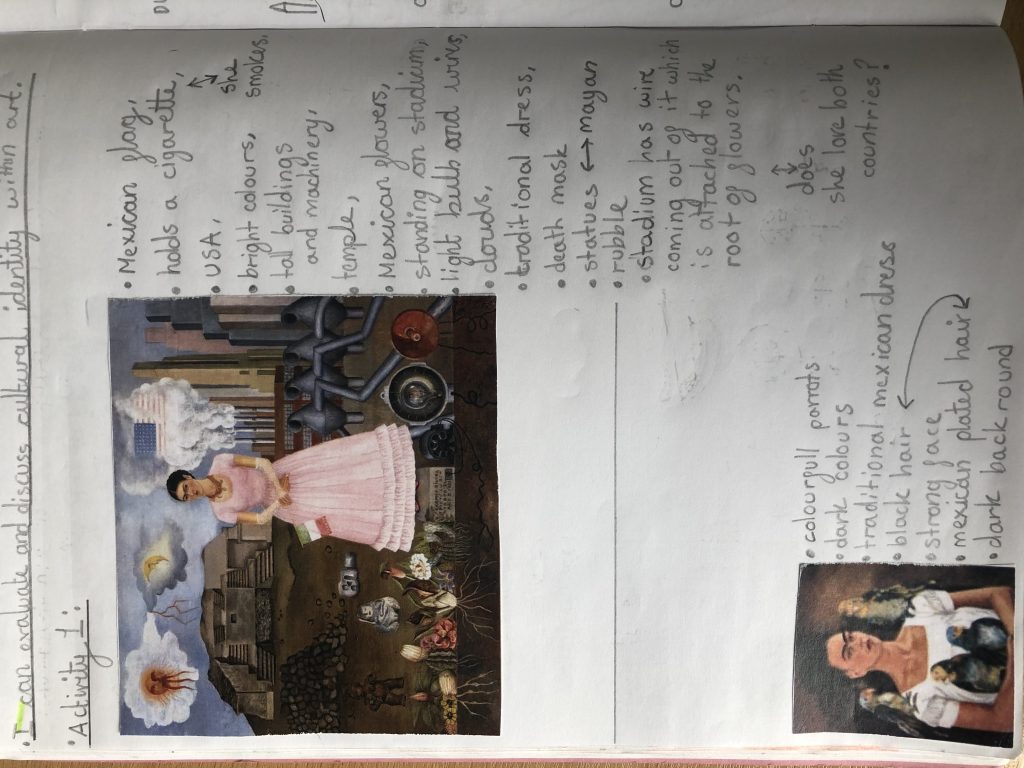 • I can evaluate and discuss cultural identity within art.
• Activity 1:
• Mexican flag,
• holds a cigarette,
she
smokes,
• USA,
• bright colours,
• tall buildings
and machinery,
• temple,
• Mexican flowers,
• standing on stadium,
• light bulb and wires,
• clouds,
• traditional dress,
• death mask
• statues ↔ mayan
• rubble
• stadium has wire
coming out of it which
is attached to the
root of flowers.
does
she love both
countries?
• colourfull portrats
• dark colours
• traditional mexican dress
• black hair
• strong face
• mexican plated hair
• dark back round